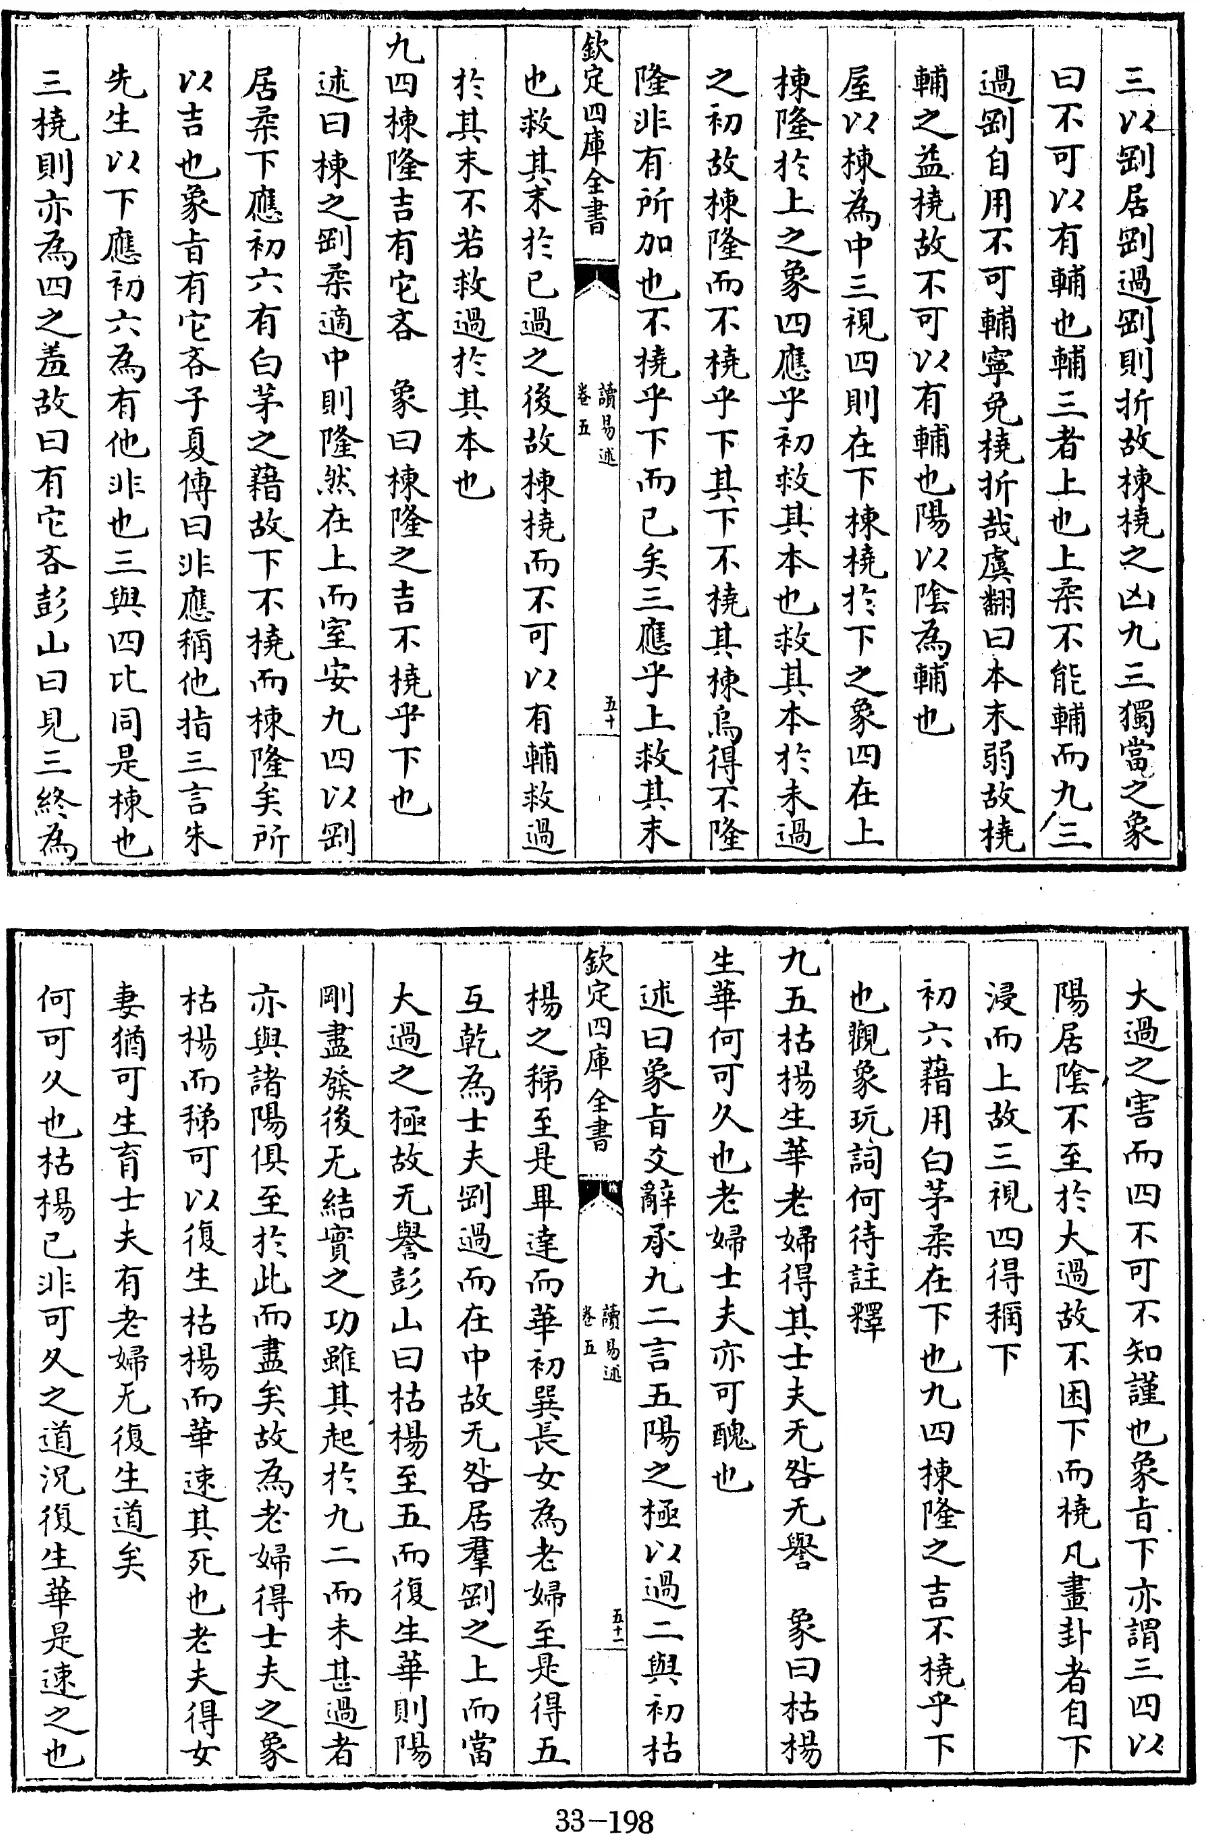 三以剛居剛過剛則折故棟橈之凶九三獨當之象
曰不可以有輔也輔三者上也上柔不能輔而九三
過剛自用不可輔寧免橈折哉虞翻曰本末弱故橈
輔之益橈故不可以有輔也陽以陰為輔也
屋以棟為中三視四則在下棟橈於下之象四在上
棟隆於上之象四應乎初救其本也救其本於未過
之初故棟隆而不橈乎下其下不橈其棟烏得不隆
隆非有所加也不橈乎下而已矣三應乎上救其末
欽定四庫全書
讀易述
卷五
五十
也救其末於已過之後故棟橈而不可以有輔救過
於其末不若救過於其本也
九四棟隆吉有它吝　象曰棟隆之吉不橈乎下也
述曰棟之剛柔適中則隆然在上而室安九四以剛
居柔下應初六有白茅之藉故下不橈而棟隆矣所
以吉也象旨有它吝子夏傳曰非應稱他指三言朱
先生以下應初六為有他非也三與四比同是棟也
三橈則亦為四之羞故曰有它吝彭山曰見三終為
大過之害而四不可不知謹也象旨下亦謂三四以
陽居陰不至於大過故不困下而橈凡畫卦者自下
浸而上故三視四得稱下
初六藉用白茅柔在下也九四棟隆之吉不橈乎下
也觀象玩詞何待註釋
九五枯楊生華老婦得其士夫无咎无譽　象曰枯楊
生華何可久也老婦士夫亦可醜也
述曰象旨爻辭承九二言五陽之極以過二與初枯
欽定四庫全書
讀易述
卷五
五十一
楊之稊至是畢達而華初巽長女為老婦至是得五
互乾為士夫剛過而在中故无咎居羣剛之上而當
大過之極故无譽彭山曰枯楊至五而復生華則陽
剛盡發後无結實之功雖其起於九二而未甚過者
亦與諸陽俱至於此而盡矣故為老婦得士夫之象
枯楊而稊可以復生枯楊而華速其死也老夫得女
妻猶可生育士夫有老婦无復生道矣
何可久也枯楊已非可久之道況復生華是速之也
33-198